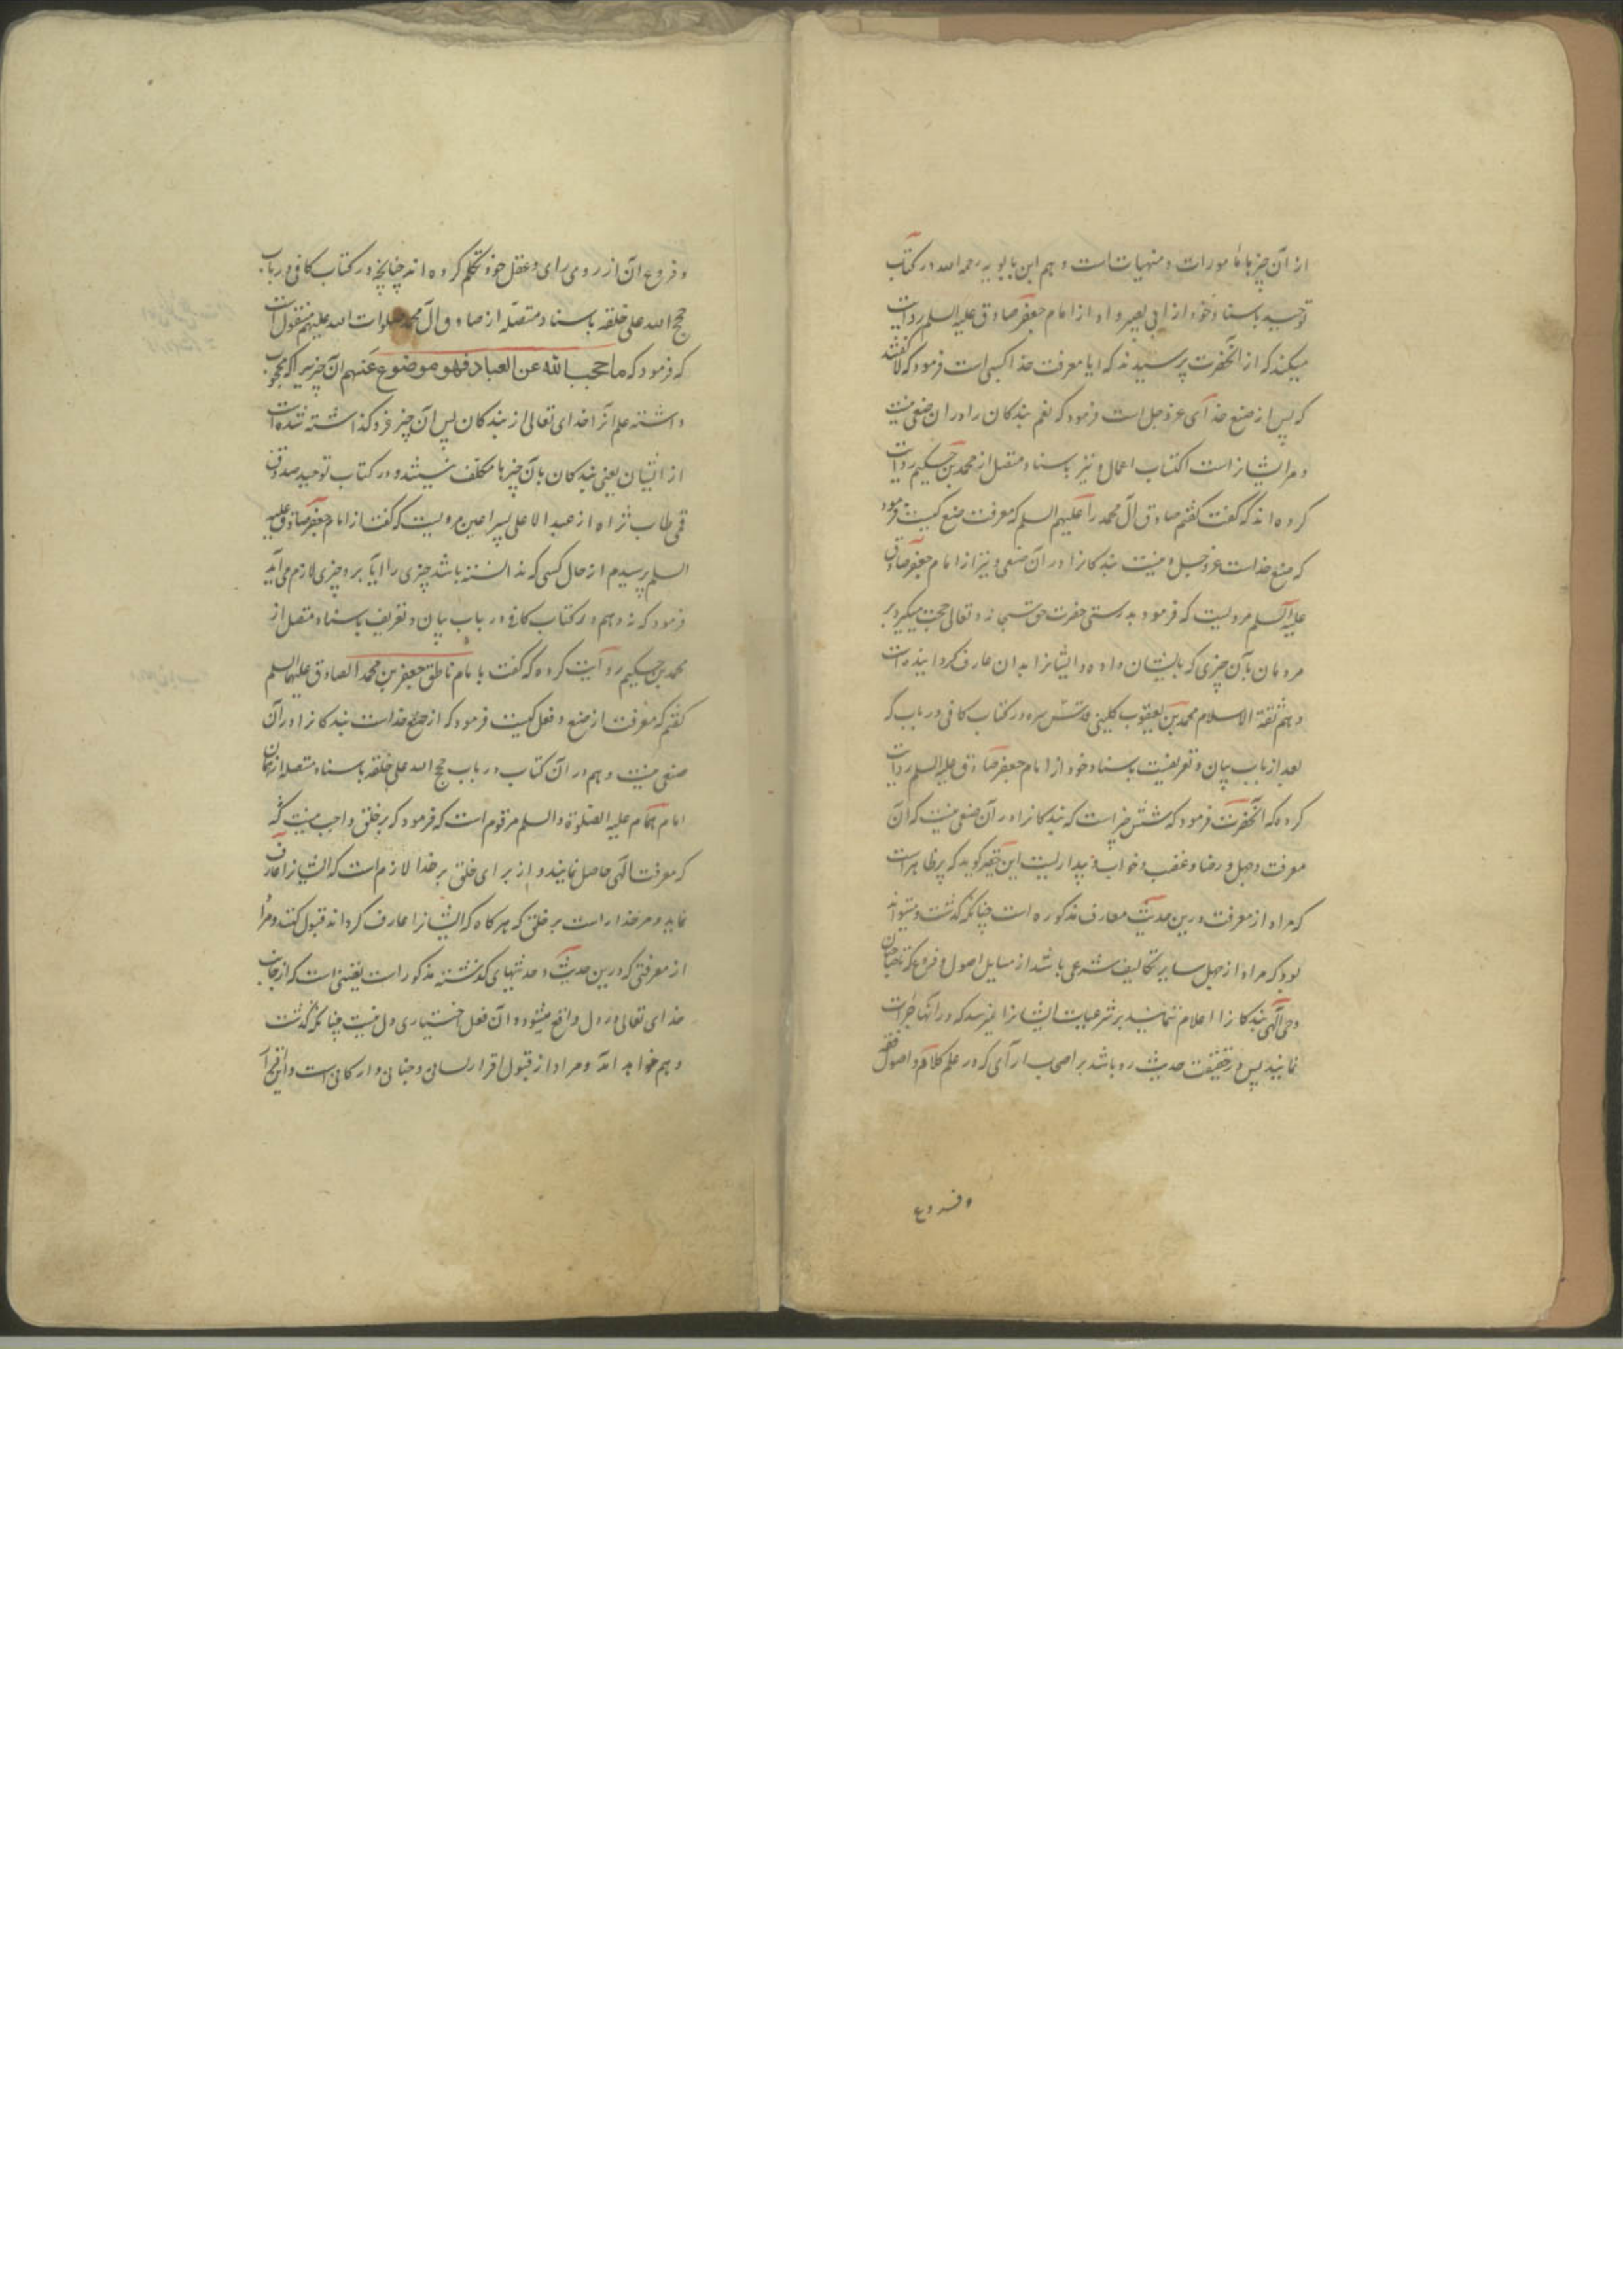 از آن چیزها مامورات و منهیات است و هم ابن بابویه رحمه الله در کتاب
توحید باسناد خود از ابی بصیر و او از امام جعفر صادق علیه السلم روایت
میکند که از آنحضرت پرسیدند که ایا معرفت خدا کسبی است فرمود که لا گفتند
که پس از صنع خدای عز و جل است فرمود که نعم بندکان را در ان صنعی نیست
و مر ایشانراست اکتساب اعمال و نیز باسناد متصل از محمد بن حکیم روایت
کرده اند که گفت گفتم صادق آل محمد را علیهم السلم که معرفت صنع کیست فرمود
که صنع خداست عز و جل و نیست بندکانرا در آن صنعی و نیز از امام جعفر صادق
علیه السلم مرویست که فرمود بدرستی حضرت حق سبحانه و تعالی حجت میکیرد بر
مردمان بآن چیزی که بایشان داده و ایشانرا بدان عارف کردانیده است
و هم ثقة الاسلام محمد بن یعقوب کلینی قدس سره در کتاب کافی در باب که
بعد از باب بیان و تعریفست باسناد خود از امام جعفر صادق علیه السلم روایت
کرده که آنحضرت فرمود که شش چیز است که بندکانرا در آن صنعی نیست که آن
معرفت و جهل و رضا و غضب و خواب و بیداریست این فقیر کوید که پر ظاهر است
که مراد از معرفت درین حدیث معارف مذکوره است چنانکه گذشت و میتواند
بود که مراد از جهل سایر تکالیف شرعی باشد از مسایل اصول و فروع که تا صاحبان
وحی الهی بندکانرا اعلام ننمایند بر شرعیات ایشانرا نمیرسد که در آنها جرات
نمایند پس در حقیقت حدیث رد باشد بر اصحاب ارآی که در علم کلام و اصول فقه
و فروع
و فروع آن از روی رای و عقل خود تکلم کرده اند چنانچه در کتاب کافی در باب
حجج الله علی خلقه باسناد متصله از صادق آل محمد صلوات الله علیهم منقول است
که فرمود که ما حجب الله عن العباد فهو موضوع عنهم آن چیزیرا که محجوب
داشته علم آنرا خدای تعالی از بندکان پس آن چیز فرو گذاشته شده است
از ایشان یعنی بندکان بآن چیزها مکلف نیستند و در کتاب توحید صدوق
قمی طاب ثراه از عبد الاعلی پسر اعین مرویست که گفت از امام جعفر صادق علیه
السلم پرسیدم از حال کسی که ندانسته باشد چیزی را ایا برو چیزی لازم می آید
فرمود که نه و هم در کتاب کافی در باب بیان و تعریف باسناد متصل از
محمد بن حکیم روایت کرده که گفت بامام ناطق جعفر بن محمد الصادق علیهما السلم
گفتم که معرفت از صنع و فعل کیست فرمود که از صنع خداست بندکانرا در آن
صنعی نیست و هم در آن کتاب در باب حجج الله علی خلقه باسناد متصله از همان
امام همام علیه الصلوة و السلم مرقوم است که فرمود که بر خلق واجب نیست که
که معرفت الهی حاصل نمایند و از برای خلق بر خدا لازم است که ایشانرا عارف
نماید و مر خدا راست بر خلق که هر کاه که ایشانرا عارف کرداند قبول کنند و مراد
از معرفتی که درین حدیث و حدیثهای کذشته مذکور است یقینی است که از جانب
خدای تعالی در دل واقع میشود و آن فعل اختیاری دل نیست چنانکه گذشت
و هم خواهد آمد و مراد از قبول اقرار لسانی و جنانی و ارکانی است